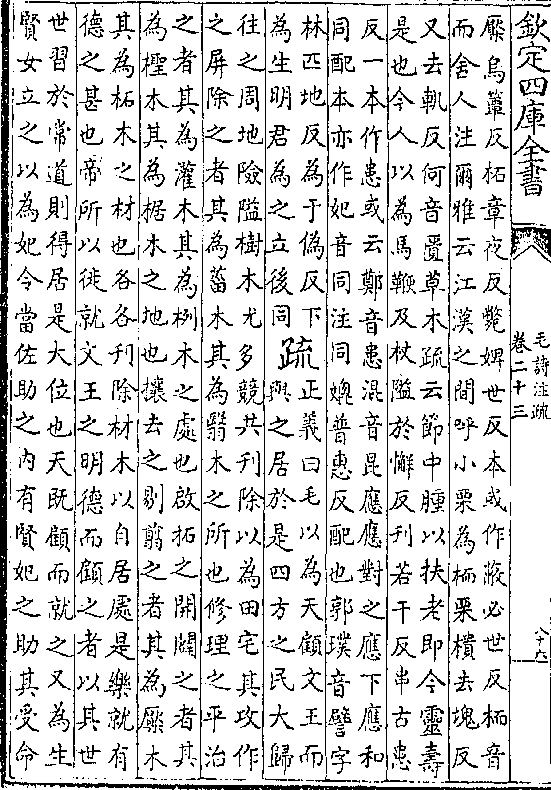 欽定四庫全書
毛詩注疏
卷二十三
檿烏簟反柘章夜反斃婢世反本或作蔽必世反栭音
而舍人注爾雅云江漢之間呼小栗為栭栗樻去塊反
又去軌反何音匱草木疏云節中腫以扶老即今靈壽
是也今人以為馬鞭及杖隘於懈反刋若干反串古患
反一本作患或云鄭音患混音昆應應對之應下應和
同配本亦作妃音同注同媲普惠反配也郭璞音譬字
林匹地反為于偽反下
為生明君為之立後同
疏
正義曰毛以為天顧文王而
與之居於是四方之民大歸
往之周地險隘樹木尤多競共刋除以為田宅其攻作
之屏除之者其為菑木其為翳木之所也修理之平治
之者其為灌木其為栵木之處也啟拓之開闢之者其
為檉木其為椐木之地也攘去之剔翦之者其為檿木
其為柘木之材也各各刋除材木以自居處是樂就有
德之甚也帝所以徙就文王之明德而顧之者以其世
世習於常道則得居是大位也天既顧而就之又為生
賢女立之以為妃令當佐助之内有賢妃之助其受命